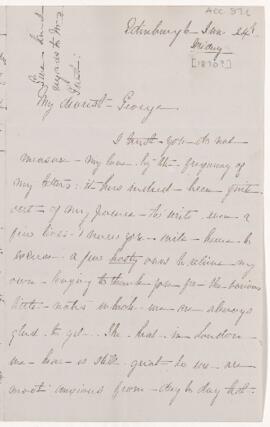 ACC 57
Edinburgh Jan 24th
Friday
[1870?]
My dearest George
I trust you do not
measure my love by the frequency of
my letters: it has indeed been quite
out of my power to write even a
few lines
a few hasty ones to relieve my
own longing to thank you for the various
little notes which we are always
glad to get. The heat in London
we hear is still great &
most anxious from day to day that